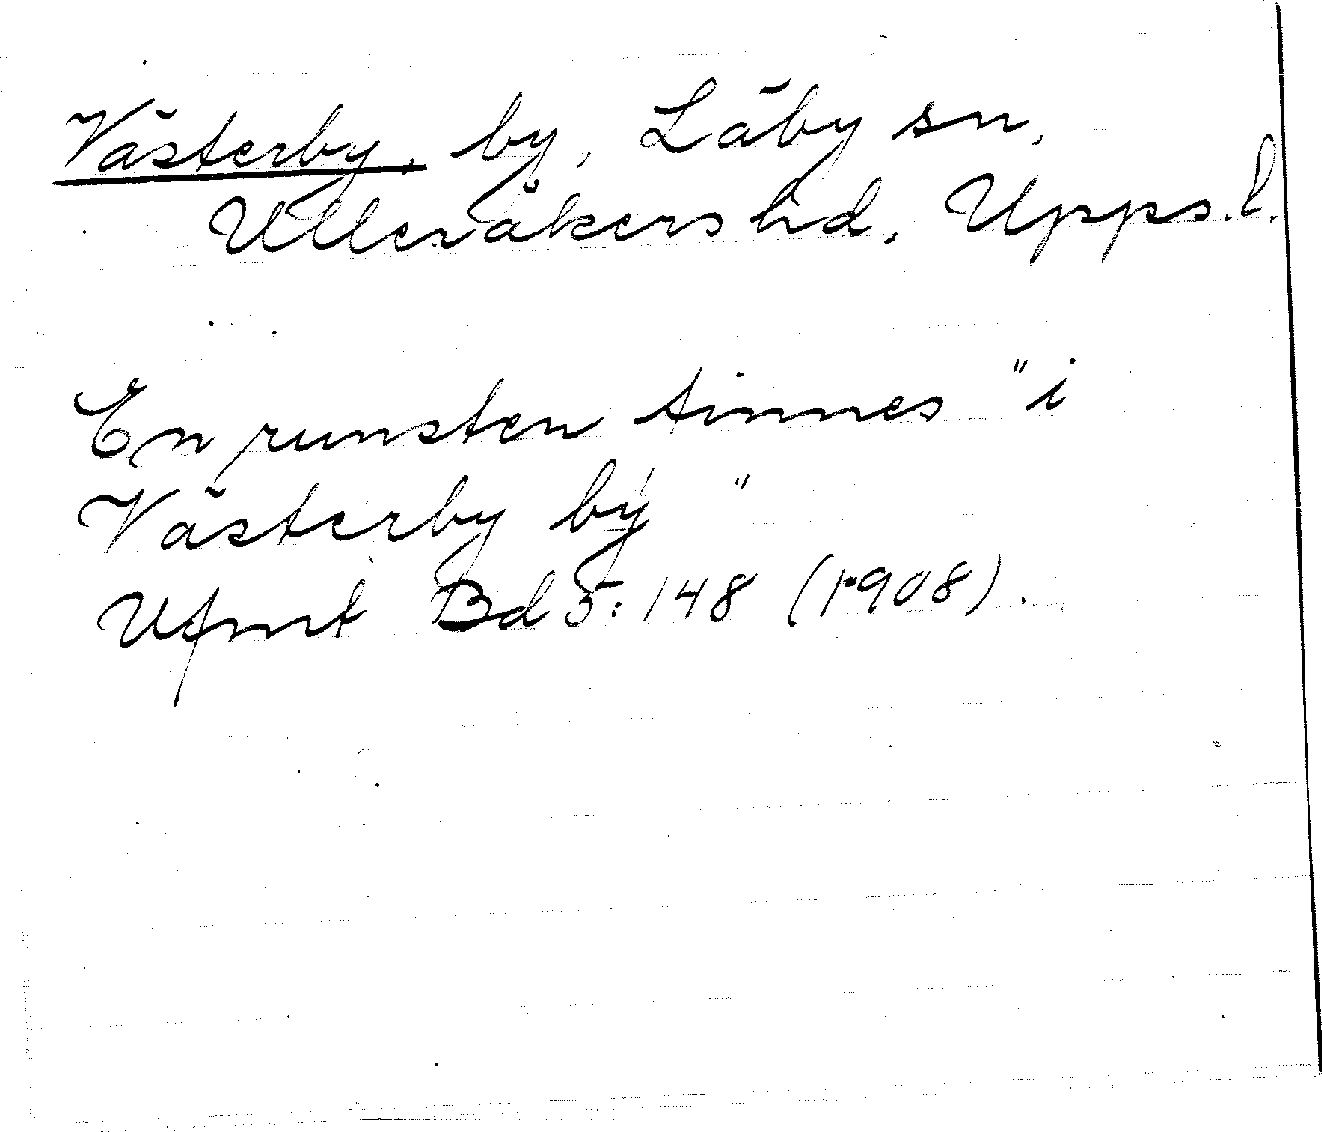 Västerby, by, Läby sn,
Ulleråkers hd, Upps.l.
En runsten finnes "i
Västerby by"
Ufmt Bd 5:148 (1908).